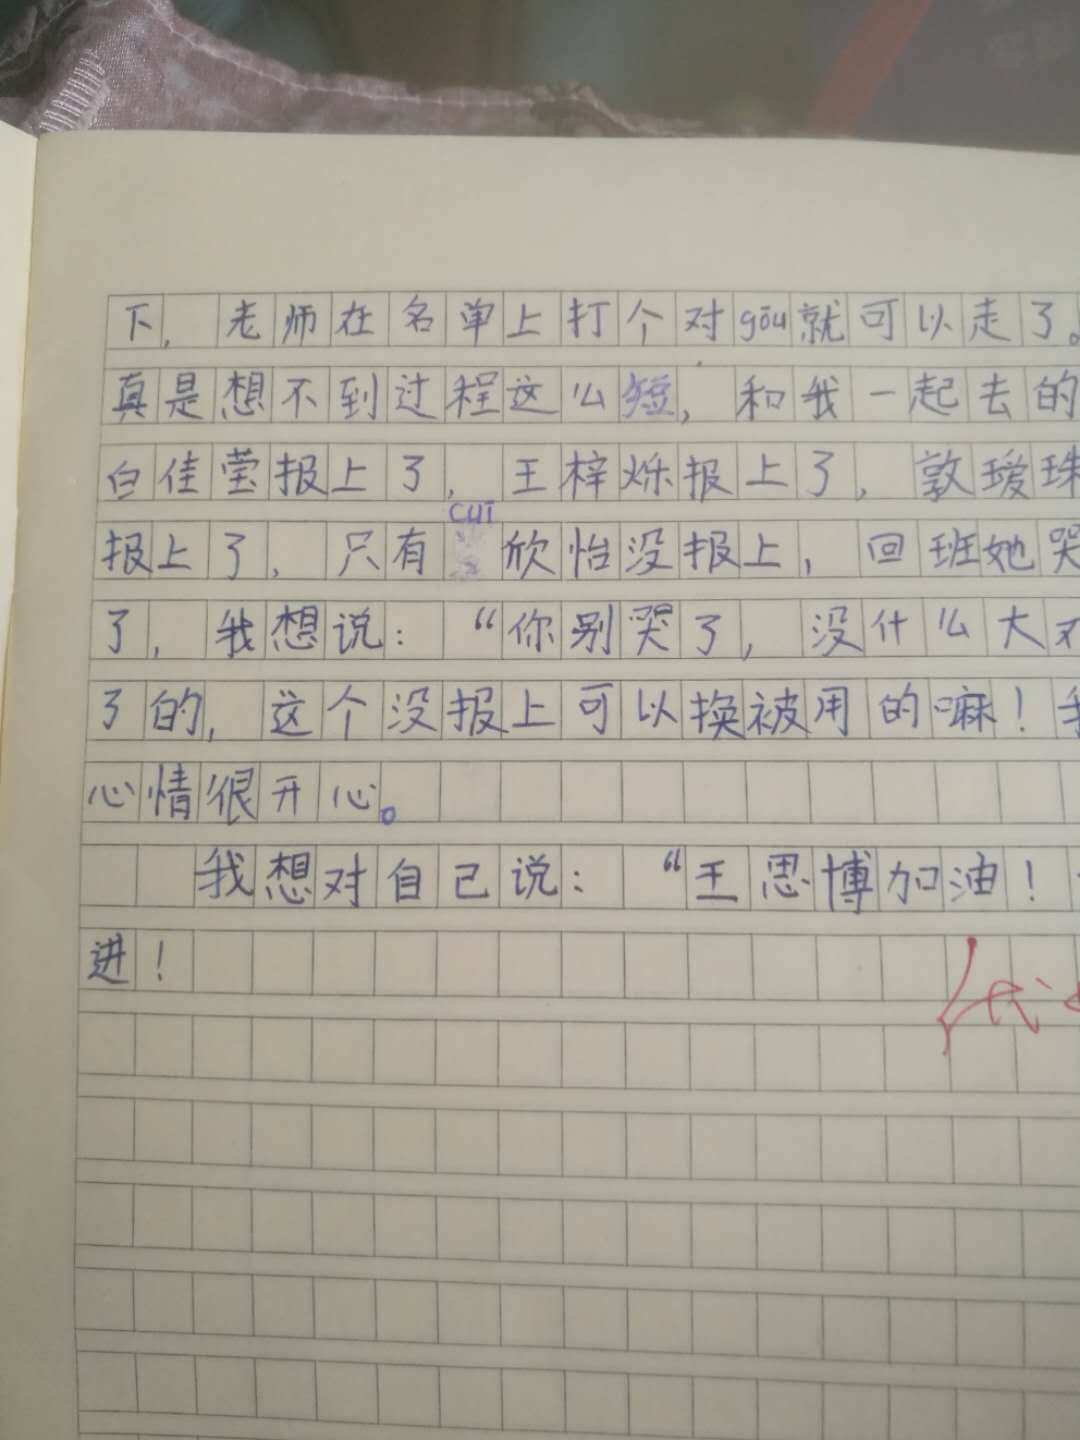 下，老师在名单上打个对gōu就可以走了。
真是想不到过程这么短，和我一起去的
白佳莹报上了，王梓烁报上了，敦瑷珠
cuī
报上了，只有 欣怡没报上，回班她哭
了，我想说：“你别哭了，没什么大不
了的，这个没报上可以换被用的嘛！我
心情很开心。
我想对自己说：“王思博加油！
进！